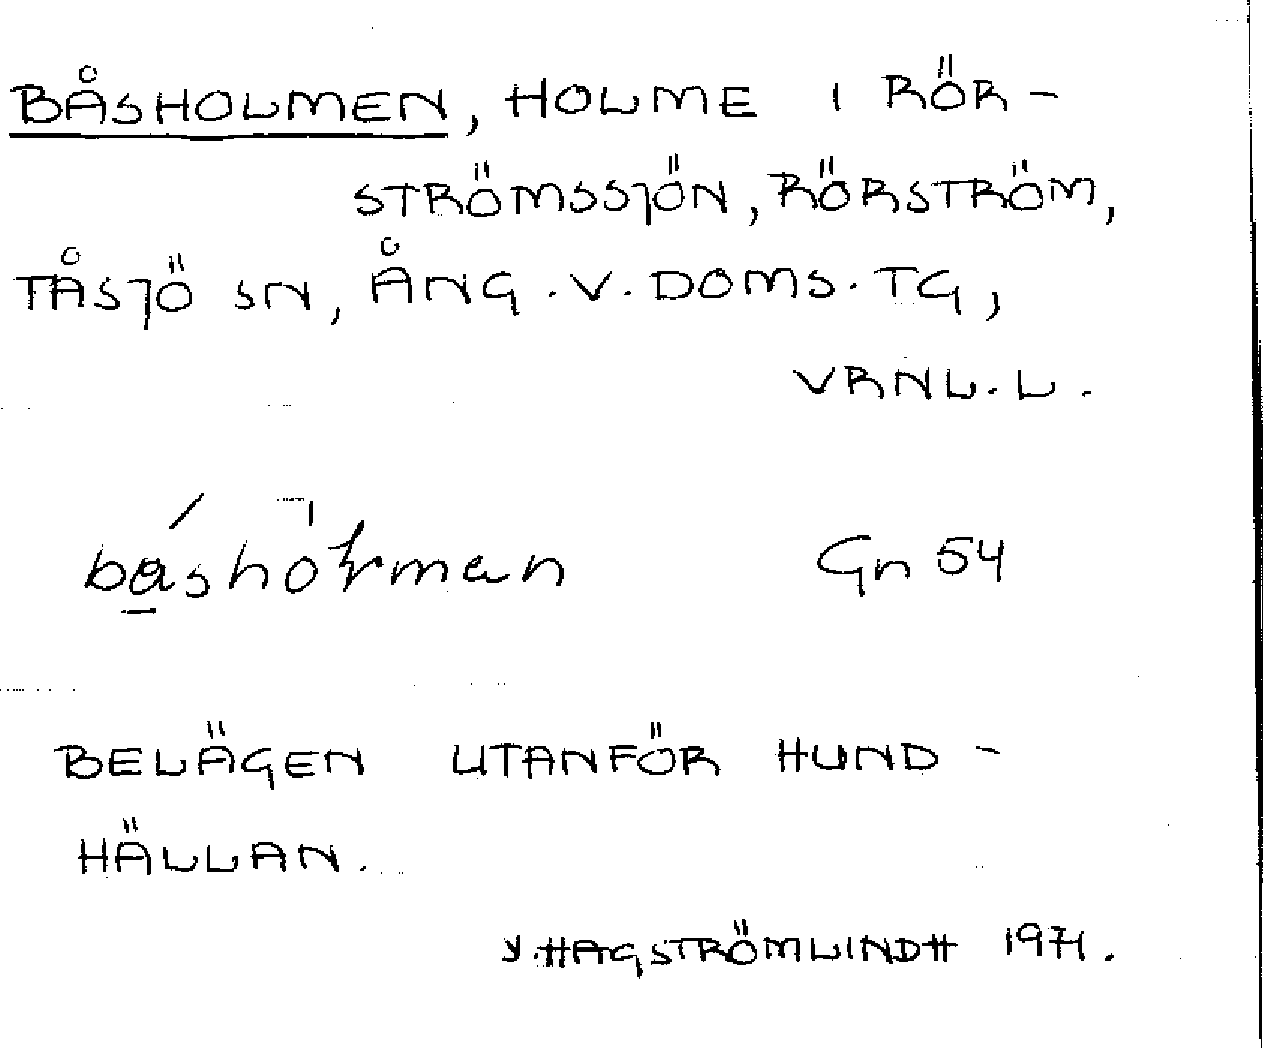 BÅSHOLMEN, HOLME I RÖR-
STRÖMSSJÖN, RÖRSTRÖM,
TÅSJÖ SN, ÅNG. V. DOMS. TG,
VRNL. L.
Gn 54
BELÄGEN UTANFÖR HUND-
HÄLLAN.
Y. HAGSTRÖMLINDH 1971.